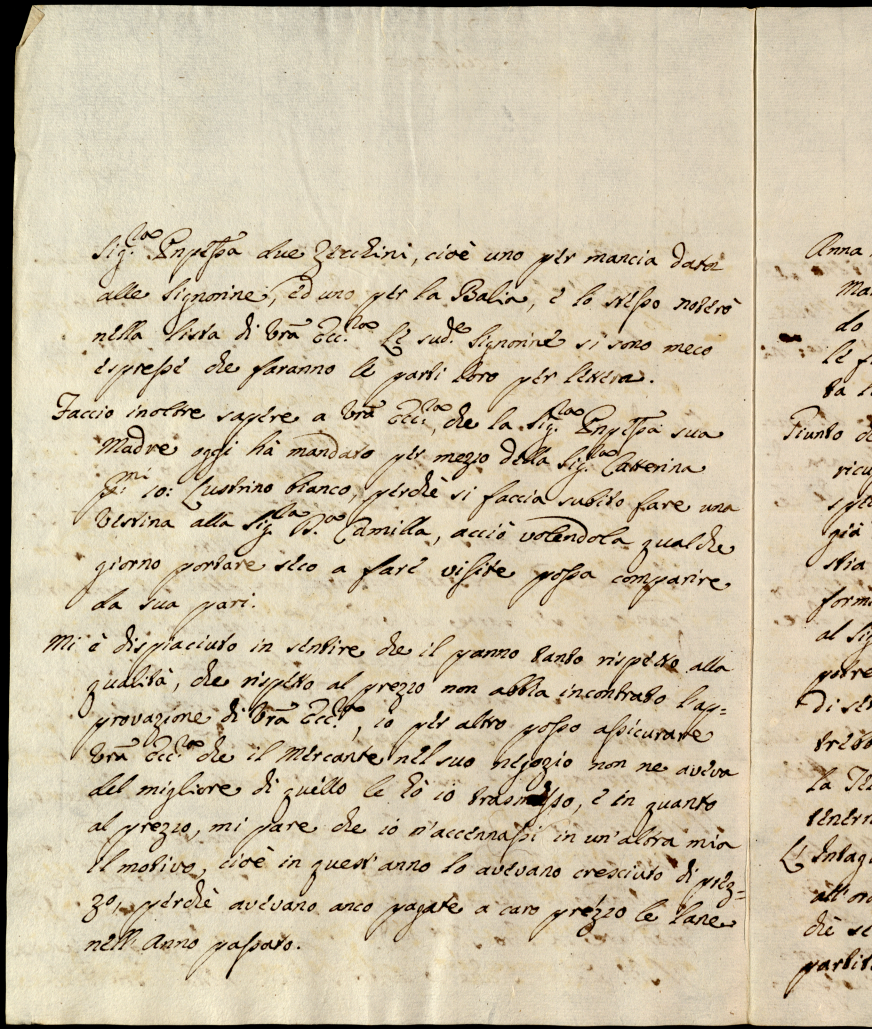 Sig.ra Cnpessa due Zecchini, cioè uno per mancia data
alle Signorine, ed uno per la Balia, e lo stesso noterò
nella lista di Vrã Ecc.za Le sud.e Signorine si sono meco
espresse che faranno le parti loro per lettera.
Faccio inoltre sapere a Vrã Ecc.za, che la Sig.ra Cnpessa sua
Madre oggi hà mandato per mezzo della Sig.ra Catterina
10: Lustrino bianco, perchè si faccia subito fare una
Vestina alla Sig.ra D.a Camilla, acciò volendola qualche
giorno portare seco a fare visite possa comparire
da sua pari.
Mi è dispiaciuto in sentire che il panno tanto rispetto alla
qualità, che rispetto al prezzo non abbia incontrato l'ap=
provazione di Vrã Ecc.za, io per altro posso assicurare
Vrã Ecc.za che il Mercante nel suo negozio non ne aveva
del migliore di quello le hò io trasmesso, e in quanto
al prezzo, mi pare che io n'accennassi in un'altra mia
il motivo, cioè in quest'anno lo avevano cresciuto di prez=
zo, perchè avevano anco pagate a caro prezzo le lane
nell'Anno passato.
Anna
Ma
do
le f
ta l
Giunto de
ricu
spe
già
stia
form
al Sig
potre
di se
trebb
la Te
tener
L'Intagl
all'or
chè se
partit